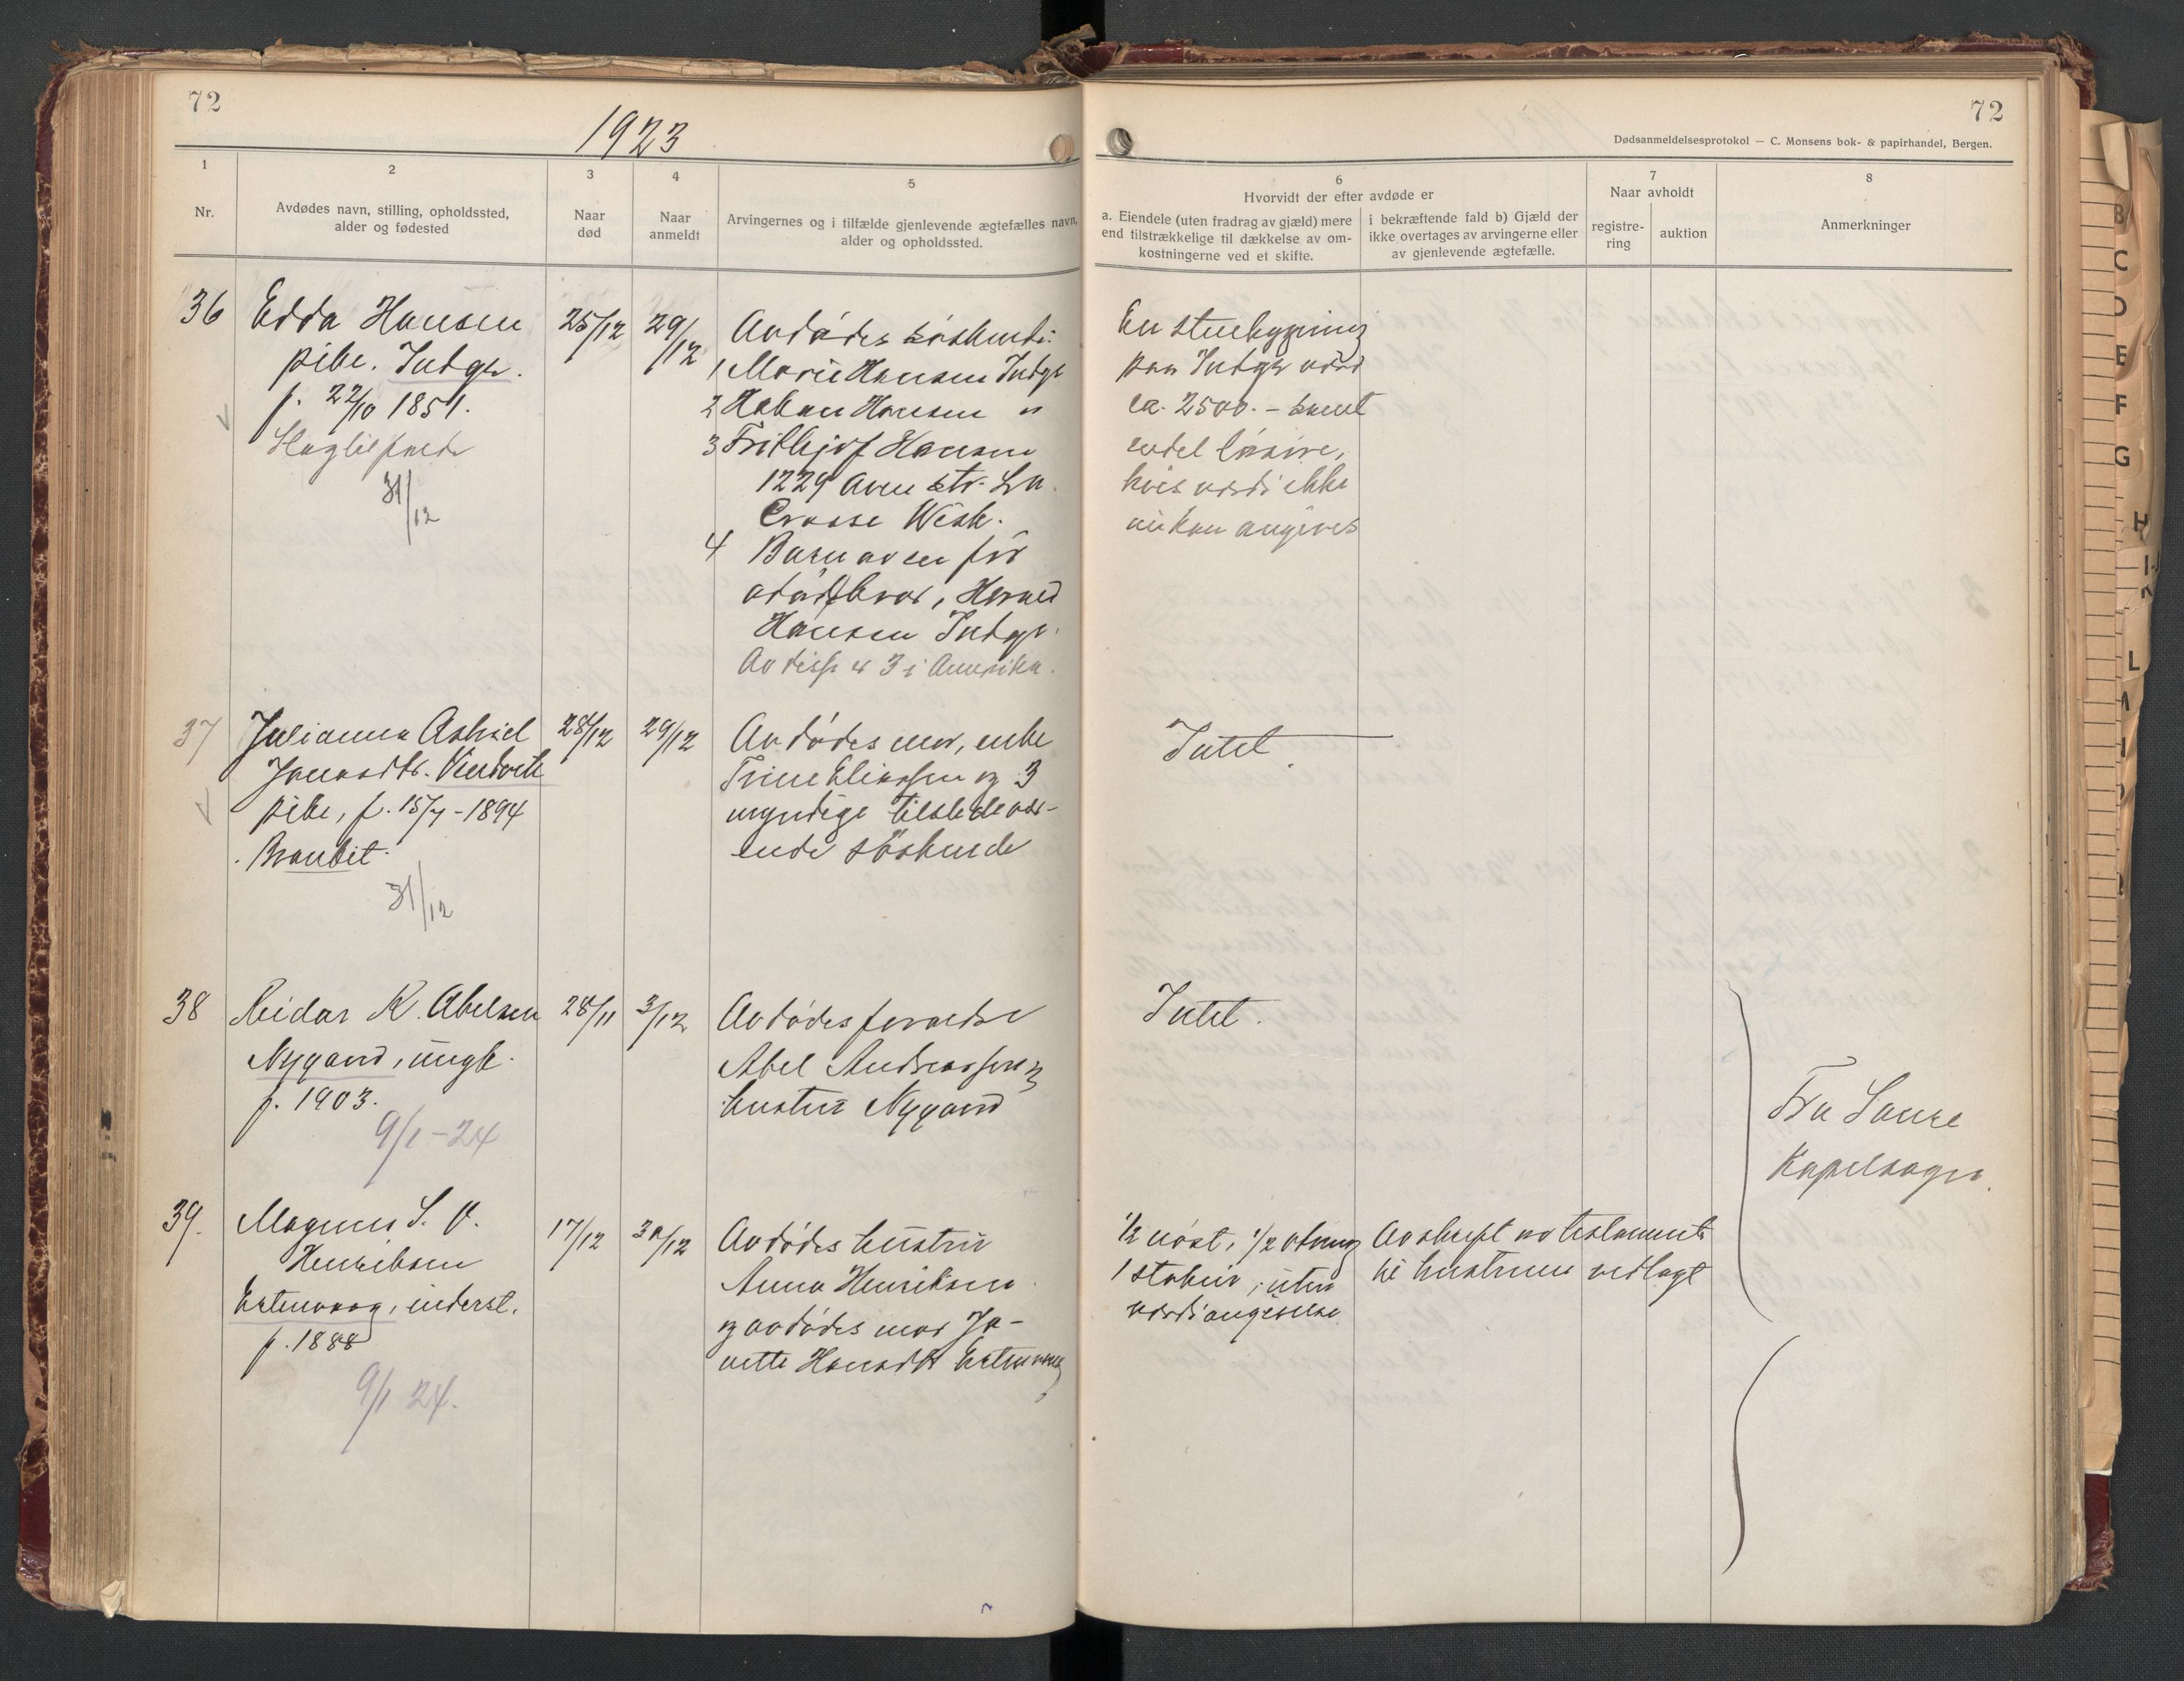 72
1923
1
2
3
4
5
Nr.
Avdødes navn, stilling, opholdssted,
alder og fødested
Naar
død
Naar
anmeldt
Arvingernes og i tilfælde gjenlevende ægtefælles navn,
alder og opholdssted.
36
Edda Hansen
pike. Indgr.
f. 22/10 1851.
31/12
25/12
29/12
Avdødes søskende:
1 Marie Hansen Indgr
2 Hakon Hansen "
3 Frithjof Hansen
1229 Avon str. La
Crosse Wisk.
4 Barn av en før
avdød bror,
Hansen Indgr.
Av disse er 3 i Amerika.
37
Julianna
Jensdtr.
pike, f. 15/7-1894
31/12
28/12
29/12
Avdødes mor, enke
Trine Eliassen og 3
myndige tilstedevær-
ende søskende
38
Reidar K. Abelsen
Nygaard, ungk.
f. 1903.
9/1-24
28/11
3/12
Avdødes forældre
Abel Andreassen og
hustru Nygaard
39.
Magnus S. O.
Henriksen
inderst.
f. 1888
9/1 24.
17/12
30/12
Avdødes hustru
Anna Henriksen
og avdødes mor Ja-
nette Hansdtr
72
Dødsanmeldelsesprotokol — C. Monsens bok- & papirhandel, Bergen.
6
Hvorvidt der efter avdøde er
a. Eiendele (uten fradrag av gjæld) mere
end tilstrækkelige til dækkelse av om-
kostningerne ved et skifte.
i bekræftende fald b) Gjæld der
ikke overtages av arvingerne eller
av gjenlevende ægtefælle.
7
Naar avholdt
registre-
ring
auktion
8
Anmerkninger
En stuebygning
paa Indgr værd
ca. 2500.- samt
endel løsøre,
hvis værdi ikke
nu kan angives
Intet.
Intet.
1/2 nøst, 1/2
1 stabur, uten
værdiangivelse.
Avskrift av testamente
til hustruen vedlagt
Fra
Kapelsogn.
B
C
D
E
F
G
H
K
L